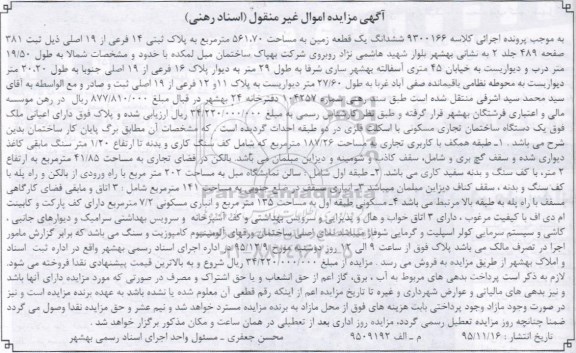 آگهی مزایده اموال غیر منقول (اسناد رهنی)
به موجب پرونده اجرائی کلاسه ۹۳۰۰۱۶۶ ششدانگ یک قطعه زمین به مساحت ۵۶۱،۷۰ مترمربع به پلاک ثبتی ۱۴ فرعی از ۱۹ اصلی ذیل ثبت ۳۸۱
صفحه ۴۸۹ جلد ۲ به نشانی بهشهر بلوار شهید هاشمی نژاد روبروی شرکت بهپاک ساختمان مبل لمکده با حدود و مشخصات شمالا به طول ۱۹/۵۰
متر درب و دیواریست به خیابان ۴۵ متری آسفالته بهشهر ساری شرقا به طول ۲۹ متر به دیوار پلاک ۱۶ فرعی از ۱۹ اصلی جنوبا به طول ۲۰،۲۰ متر
دیواریست به محوطه نظامی باقیمانده صفی آباد غربا به طول ۲۷/۶۰ متر دیواریست به پلاک ۱۱ و ۱۲ فرعی از ۱۹ اصلی ثبت و صادر و مع الواسطه به آقای
سید محمد سید اشرفی منتقل شده است طبق سند رهنی ۱۴۲۵۷ دفترخانه ۲۴ بهشهر در قبال مبلغ ۸۷۷/۸۱۰/۰۰۰ ریال در رهن موسسه
مالی و اعتباری فرشتگان بهشهر قرار گرفته و طبق نظر کارشناس رسمی به مبلغ ۳۴/۲۲۰/۰۰۰/۰۰۰ ریال ارزیابی شده و پلاک فوق دارای اعیانی ملک
فوق یک دستگاه ساختمان تجاری مسکونی با اسکلت فلزی در دو طبقه احداث گردیده است که مشخصات آن مطابق برگ پایان کار ساختمان بدین
شرح می باشد . ۱ـ طبقه همکف با کاربری تجاری به مساحت ۱۸۷/۲۶ مترمربع که شامل کف سنگ کاری و پدنه تا ارتفاع ۱/۲۰ متر سنگ مابقی کاغذ
دیواری شده و سقف گچ بری و شامل، سقف کاذب و شومینه و دیزاین مبلمان می باشد. بالکن در فضای تجاری به مساحت ۴۱/۸۵ مترمربع به ارتفاع
۲ متر، با کف سنگ و بدنه سفید کاری می باشد. ۲ـ طبقه اول شامل : سالن نمایشگاه مبل به مساحت ۲۰۲ متر مربع با راه ورودی از بالکن و راه پله با
کف سنگ و بدنه ، سقف کناف دیزاین مبلمان میباشد ۳ـ انباری مسکونی به مساحت ۱۴۱ مترمربع شامل : ۳ اتاق و مابقی فضای کارگاهی
مسقف با راه پله به طبقه بالا مرتبط می باشد ۴ـ مسکونی طبقه اول به مساحت ۱۳۵ متر مربع و انباری مسکونی ۷/۲ مترمربع دارای کف پارکت و کابینت
ام دی اف با کیفیت مرغوب ، دارای ۳ اتاق خواب و هال و پذیرایی و سرویس بهداشتی و کف آشپزخانه و سرویس بهداشتی سرامیک و دیوارهای جانبی ،
کاشی و سیستم سرمایی کولر اسپلیت و گرمایی شوفاژ میباشد نمای اصلی ساختمان ورقهای آلومینیوم کامپوزیت و سنگ می باشد که برابر گزارش مامور
اجرا در تصرف مالک می باشد پلاک فوق از ساعت ۹ الی ۱۲ روز دوشنبه مورخ ۹۵/۱۲/۹ در اداره اجرای اسناد رسمی بهشهر واقع در اداره ثبت اسناد
و املاک بهشهر از طریق مزایده به فروش می رسد . مزایده از مبلغ ۳۴/۲۲۰/۰۰۰/۰۰۰ ریال شروع و به بالاترین قیمت پیشنهادی نقدا فروخته می شود.
لازم به ذکر است پرداخت بدهی های مربوط به آب ، برق، گاز اعم از حق انشعاب و یا حق اشتراک و مصرف در صورتی که مورد مزایده دارای آنها باشد
و نیز بدهی های مالیاتی و عوارض شهرداری و غیره تا تاریخ مزایده اعم از اینکه رقم قطعی آن معلوم شده یا نشده باشد به عهده برنده مزایده است و نیز
در صورت وجود مازاد وجوه پرداختی بابت هزینه های فوق از محل مازاد به برنده مزایده مسترد خواهد شد و نیم عشر و حق مزایده نقدا وصول می گردد
ضمنا چنانچه روز مزایده تعطیل رسمی گردد، مزایده روز اداری بعد از تعطیلی در همان ساعت و مکان مذکور برگزار خواهد شد .
تاریخ انتشار : ۹۵/۱۱/۱۶ م ـ الف ۹۵۰۹۱۹۲ محسن جعفری ـ مسئول واحد اجرای اسناد رسمی بهشهر